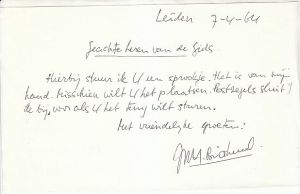 Leiden 7-4-64
Geachte heren van de Gids
Hierbij stuur ik U een sprookje. Het is van mijn
hand. Misschien wilt U het plaatsen. Postzegels sluit ik
bij, voor als U het terug wilt sturen.
Met vriendelijke groeten: